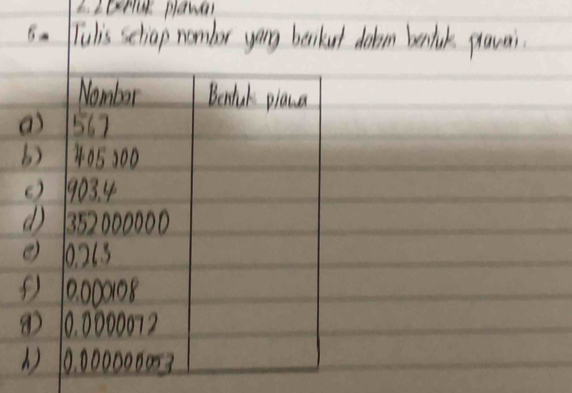 2.2 Bentuk piawai
5. Tulis setiap nombor yang berikut dalam bentuk piawai.
Nombor Bentuk piawa
a) 567
b) 405000
c) 903.4
d) 352000000
e) 0.263
f) 0.000108
g) 0.0000072
h) 0.000000053